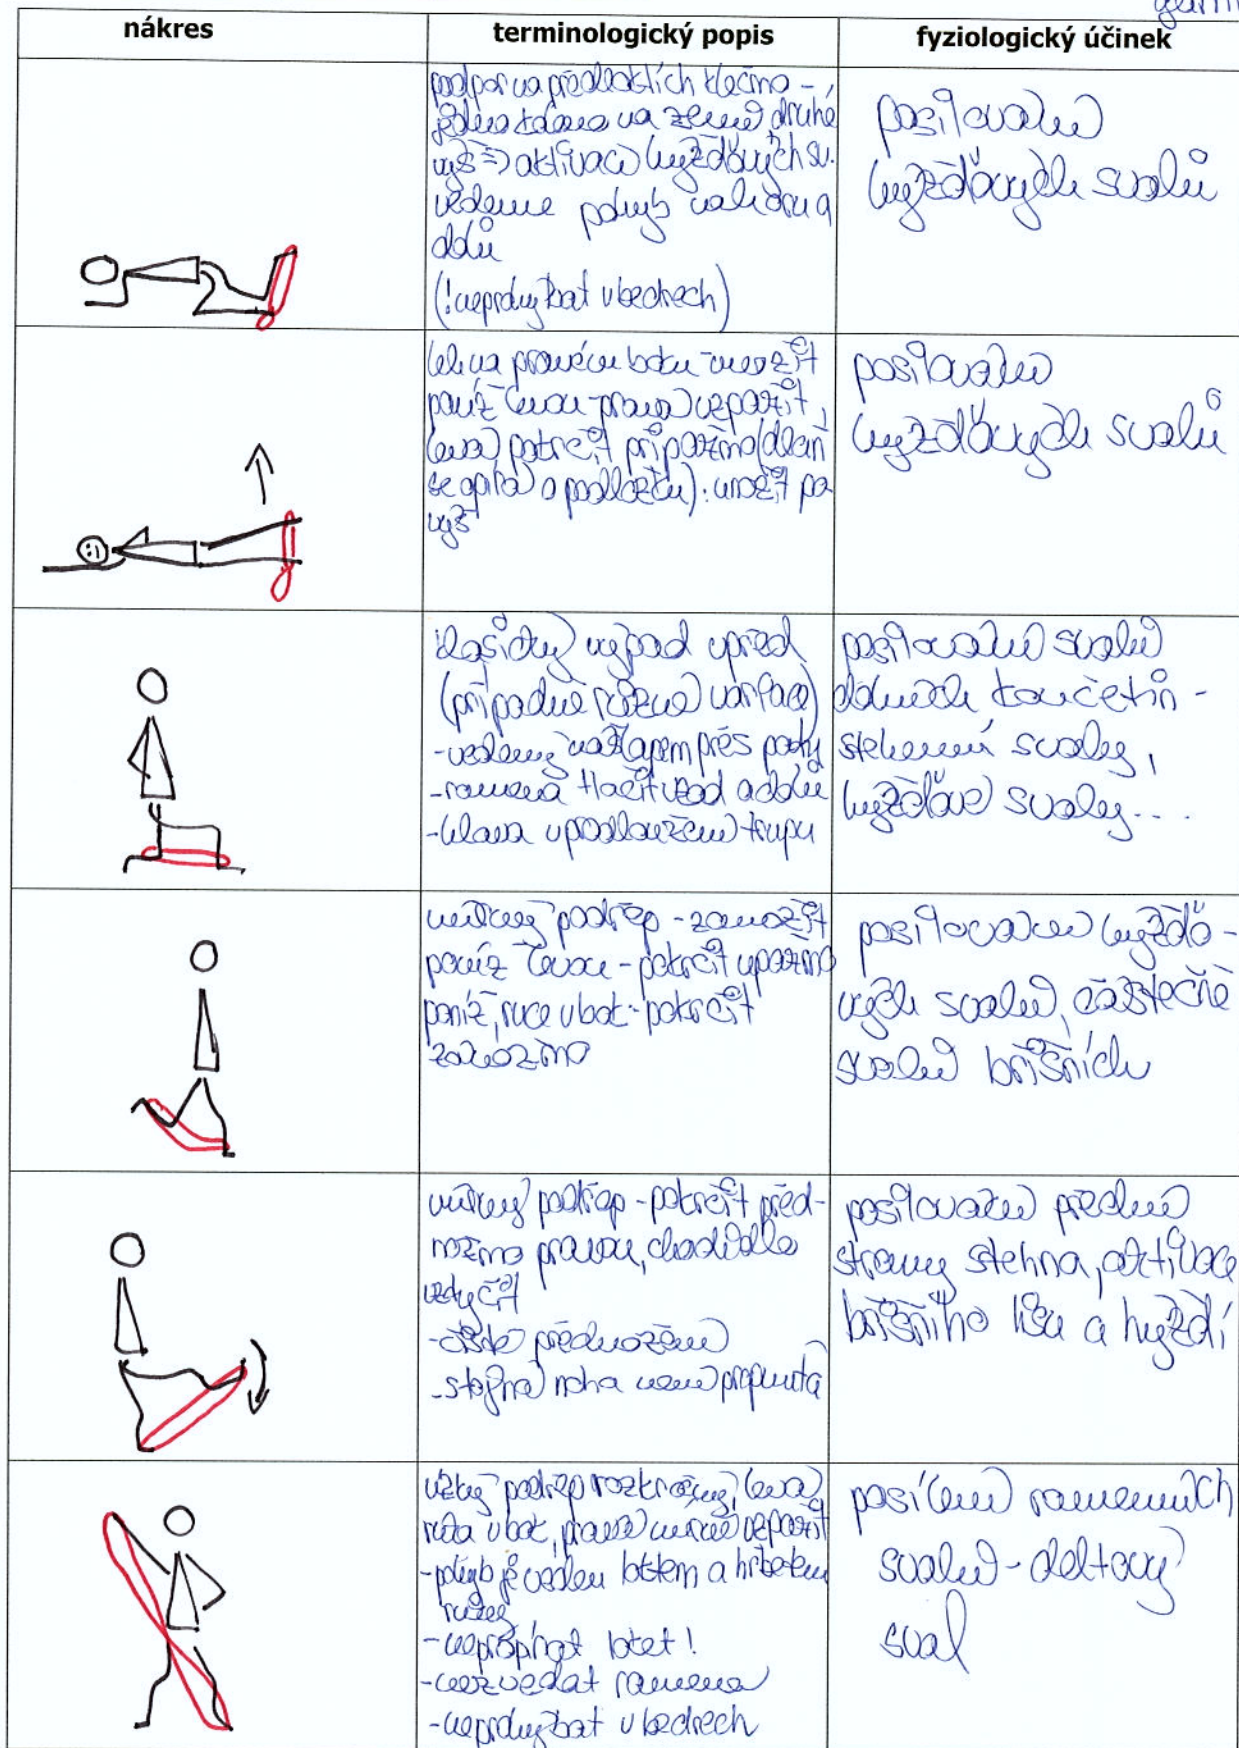 nákres
terminologický popis
fyziologický účinek
podpor na předloktích klečmo -
jedno koleno na zemi druhé
výš => aktivace hýžďových sv.
vedeme pohyb nahoru a
dolů
(! neprohýbat v bedrech)
posilování
hýžďových svalů
leh na pravém boku - unožit
poníž levou - pravá vzpažit,
levá pokrčit připažmo (dlaň
se opírá o podložku): unožit po
výš
posilování
hýžďových svalů
klasický výpad vpřed
(případně různé variace)
- vedený nášlapem přes paty
- ramena tlačit vzad a dolů
- hlava v prodloužení trupu
posilování svalů
dolních končetin -
stehenní svaly,
hýžďové svaly...
mírný podřep - zanožit
poníž levou - pokrčit upažmo
poníž, ruce v bok: pokrčit
zánožmo
posilování hýžďo-
vých svalů, částečně
svalů břišních
mírný podřep - pokrčit před-
nožmo pravou, chodidlo
vztyčit
- přednožení
- stojná noha není propnutá
posilování přední
strany stehna, aktivace
břišního lisu a hýždí
úzký podřep rozkročný, levá
ruka v bok, pravá vzpažit
- pohyb je veden loktem a hřbetem
ruky
- nepropínat loket!
- nezvedat ramena
- neprohýbat v bedrech
posílení ramenních
svalů - deltový
sval